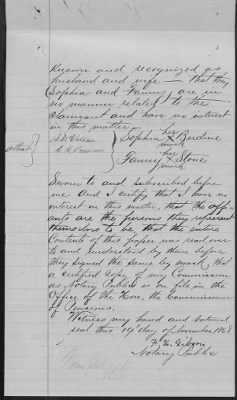 Known and recognized as
husband and wife — that they
Sophia and Fanny are in
no manner related to the
claimant and have no interest
in this matter.
her
Sophia X Berdine
attest mark
her
Fanny X Stone
mark
Sworn to and subscribed before
me and I certify that I have no
interest in this matter, that the affi-
ants are the persons they represent
themselves to be, that the entire
Contents of this paper was read over
to and understood by them before
they signed the same by mark, that
a certified copy of my Commission
as Notary Public is on file in the
Office of the Hon. the Commissioner
of Pensions.
Witness my hand and notarial
seal this 19th day of November
Notary Public